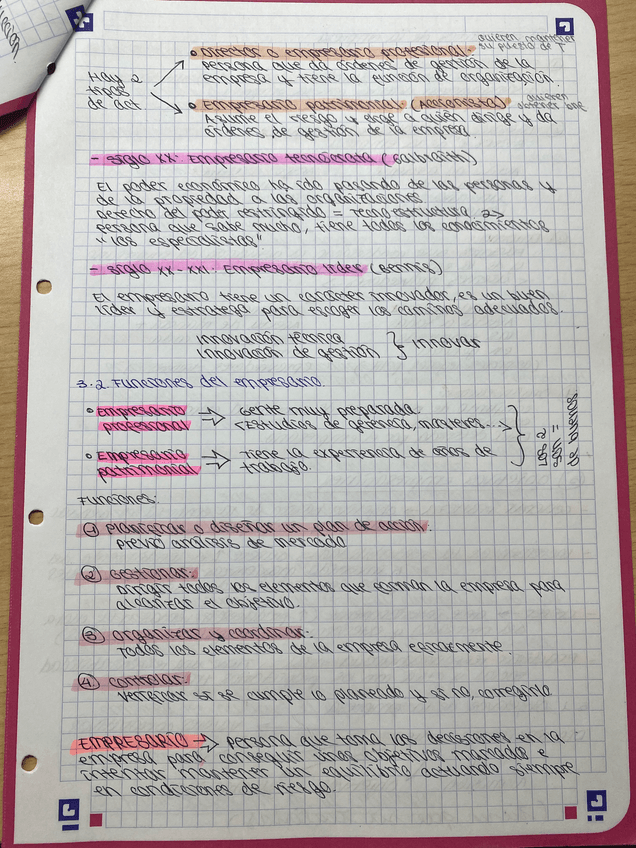 cción.
quieren mantener
su puesto de T
• Director o empresario profesional:
Persona que da órdenes de gestión de la
empresa y tiene la función de organización.
Hay 2
tipos
de act
• Empresario patrimonial (Accionista)
quieren
obtener
Asume el riesgo y elige a quién dirige y da
órdenes de gestión de la empresa
- Siglo XX. Empresario tecnócrata (Galbraith)
El poder económico ha ido pasando de las personas y
de la propiedad a las organizaciones
Derecho del poder restringido = Tecnoestructura
persona que sabe mucho, tiene todos los conocimientos
"los especialistas"
- Siglo XX - XXI. Empresario líder (Bennis)
El empresario tiene un carácter innovador, es un buen
líder y estratega para escoger los caminos adecuados.
Innovación técnica
Innovación de gestión } innovar
3.2. Funciones del empresario.
• Empresario
profesional → Gente muy preparada.
Estudios de gerencia, masteres...
• Empresario
patrimonial → Tiene la experiencia de años de
trabajo.
Los 2
son =
de buenos
Funciones:
① Planificar o diseñar un plan de acción.
Previo análisis de mercado
② Gestionar:
Dirigir todos los elementos que forman la empresa para
alcanzar el objetivo.
③ Organizar y coordinar:
Todos los elementos de la empresa eficazmente.
④ Controlar:
Verificar si se cumple lo planeado y si no, corregirlo
EMPRESARIO → Persona que toma las decisiones en la
empresa para conseguir unos objetivos marcados e
intentar mantener un equilibrio actuando siempre
en condiciones de riesgo.